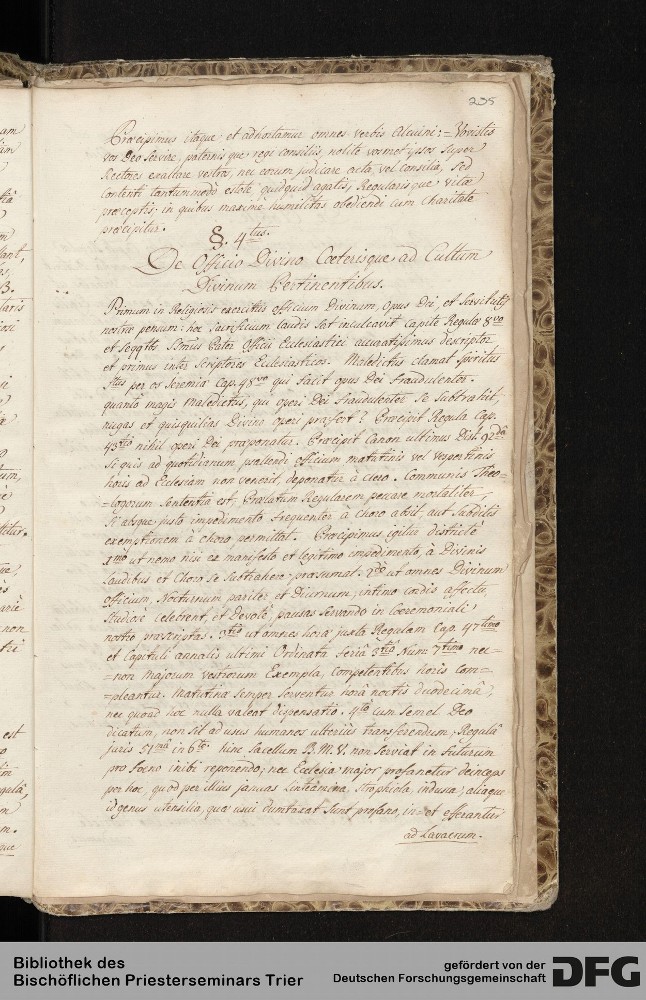 235
Præcipimus itaque et adhortamur omnes verbis Alcuini: = Vovistis
vos Deo servire, paternisque regi consiliis, nolite vosmet ipsos super
Rectores exaltare vestros, nec eorum judicare acta, vel consilia, sed
contenti tantummodo estote quidquid agatis, Regularisque vitæ
præceptis: in quibus maximè humilitas obediendi cum Charitate
præcipitur.
§. 4tus.
De Officio Divino Cœterisque ad Cultum
Divinum Pertinentibus.
Primum in Religiosis exercitiis officium Divinum, Opus Dei et servitutis
nostræ pensum: hoc sacrificium laudis sat inculcavit capite Regulæ 8vo
et seqqtbs. Pater Officii Ecclesiastici accuratissimus descriptor
et primus inter scriptores Ecclesiasticos. Maledictus clamat spiritus
Sttus per os Jeremiæ Cap. 48vo qui facit opus Dei fraudulenter.
quantò magis maledictus, qui operi Dei fraudulenter se subtrahit,
nugas et quisquilias Divino operi præfert? Præcipit Regula Cap.
43tio nihil operi Dei præponatur. Præcipit Canon ultimus Dist. 92da
si quis ad quotidianum psallendi officium matutinis vel vespertinis
horis ad Ecclesiam non venerit, deponatur à clero. Communis Theo=
=logorum sententia est, Prælatum Regularem peccare mortaliter,
si absque justo impedimento frequenter à choro absit, aut subditis
exemptionem à choro permittat. Præcipimus igitur districtè
1mo ut nemo nisi ex manifesto et legitimo impedimento, à Divinis
laudibus et Choro se subtrahere præsumat. 2do ut omnes Divinum
officium, Nocturnum pariter et Diurnum, intimo cordis affectu,
studiosè celebrent, et Devotè, pausas servando in Cœremoniali
nostro præscriptas. 3tiò ut omnes horæ juxta Regulam Cap. 47timo
et Capituli annalis ultimi Ordinata feriâ 3tiâ Num: 7timo nec=
=non majorum vestrorum Exempla, competentibus horis com=
=pleantur. Matutina semper serventur horâ noctis duodecimâ;
nec quoad hoc nulla valeat dispensatio. 4to cum semel Deo
dicatum, non sit ad usus humanos ulteriùs transferendum, Regulâ
juris 51mâ in 6to: hinc sacellum B.M.V. non serviat in futurum
pro fœno inibi reponendo; nec Ecclesia major profanetur deinceps
per hoc, quod per illius januas linteamina, strophiola, indusia, aliaque
id genus utensilia, quæ usui dumtaxat sunt profano, in= et efferantur
ad Lavacrum.
Bibliothek des
Bischöflichen Priesterseminars Trier
gefördert von der
Deutschen Forschungsgemeinschaft
DFG